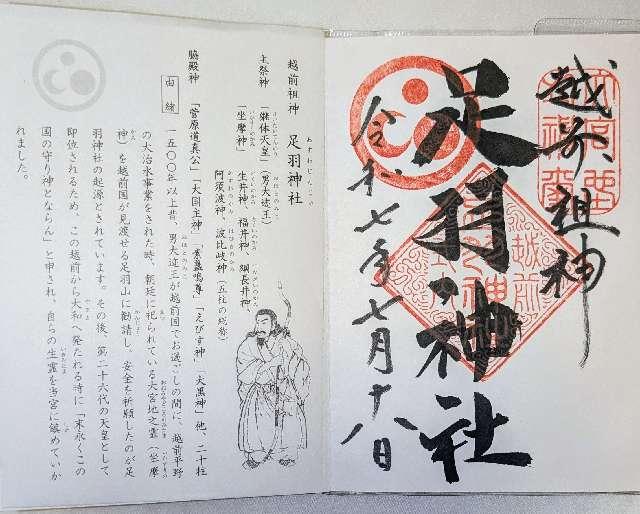 越前祖神
足羽神社
令和七年七月十八日
越前祖神　足羽神社
主祭神　「継体天皇」（男大迹王）
「坐摩神」　生井神、福井神、綱長井神、
阿須波神、波比岐神（五柱の総称）
脇殿神　「菅原道真公」「大国主神」「素盞嗚尊」「えびす神」「大黒神」他、二十柱
由緒
一五〇〇年以上昔、男大迹王が越前国でお過ごしの間に、越前平野
の大治水事業をされた時、朝廷に祀られている大宮地之霊（坐摩
神）を越前国が見渡せる足羽山に勧請し、安全を祈願したのが足
羽神社の起源とされています。その後、第二十六代の天皇として
即位されるため、この越前から大和へ発たれる時に「末永くこの
国の守り神とならん」と申され、自らの生霊を当宮に鎮めていか
れました。